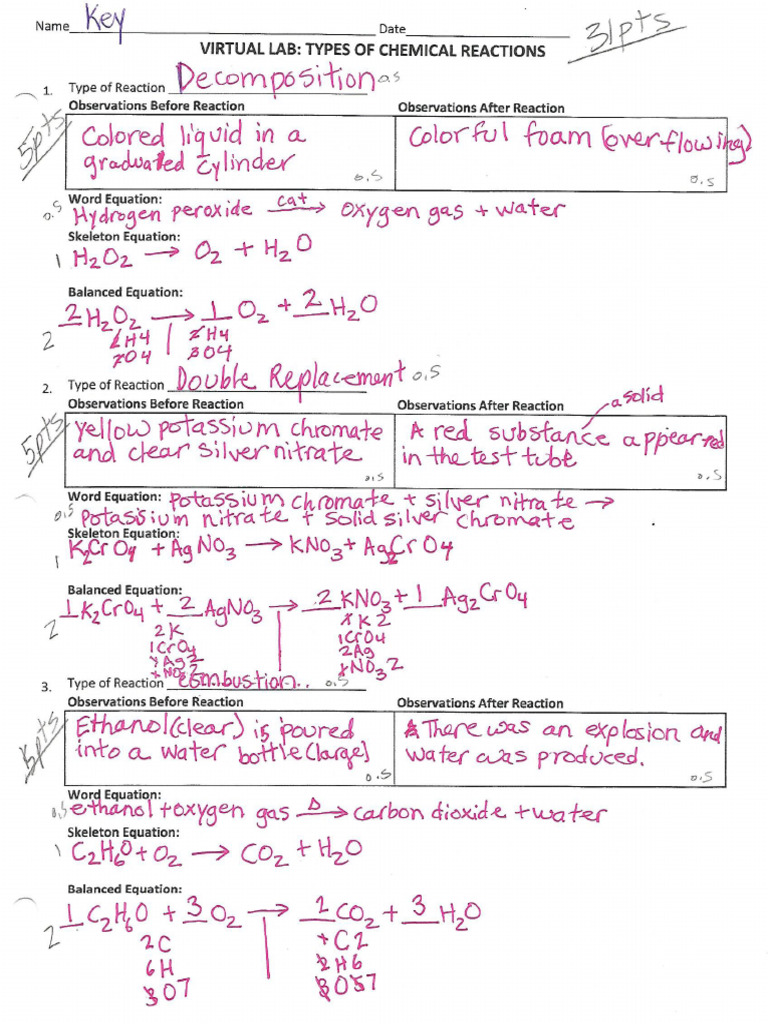 Name Key Date 31pts
VIRTUAL LAB: TYPES OF CHEMICAL REACTIONS
1. Type of Reaction Decomposition 0.5
5pts Observations Before Reaction Observations After Reaction
Colored liquid in a graduated cylinder 0.5
Colorful foam (overflowing) 0.5
Word Equation:
0.5 Hydrogen peroxide cat→ oxygen gas + water
Skeleton Equation:
1 H2O2 → O2 + H2O
Balanced Equation:
2 H2O2 → 1 O2 + 2 H2O
2 H4 H4
O4 O4
2. Type of Reaction Double Replacement 0.5
5pts Observations Before Reaction Observations After Reaction a solid
yellow potassium chromate and clear silver nitrate 0.5
A red substance appeared in the test tube 0.5
Word Equation: potassium chromate + silver nitrate →
0.5 potassium nitrate + solid silver chromate
Skeleton Equation:
1 K2CrO4 + AgNO3 → KNO3 + Ag2CrO4
Balanced Equation:
2 1 K2CrO4 + 2 AgNO3 → 2 KNO3 + 1 Ag2CrO4
2K K2
1CrO4 1CrO4
Ag2 2Ag
NO3 2 NO3 2
3. Type of Reaction combustion.. 0.5
5pts Observations Before Reaction Observations After Reaction
Ethanol(clear) is poured into a water bottle(large) 0.5
There was an explosion and water was produced. 0.5
Word Equation:
0.5 ethanol + oxygen gas Δ→ carbon dioxide + water
Skeleton Equation:
1 C2H6O + O2 → CO2 + H2O
Balanced Equation:
2 1 C2H6O + 3 O2 → 2 CO2 + 3 H2O
2C C2
6H H6
O7 O 7